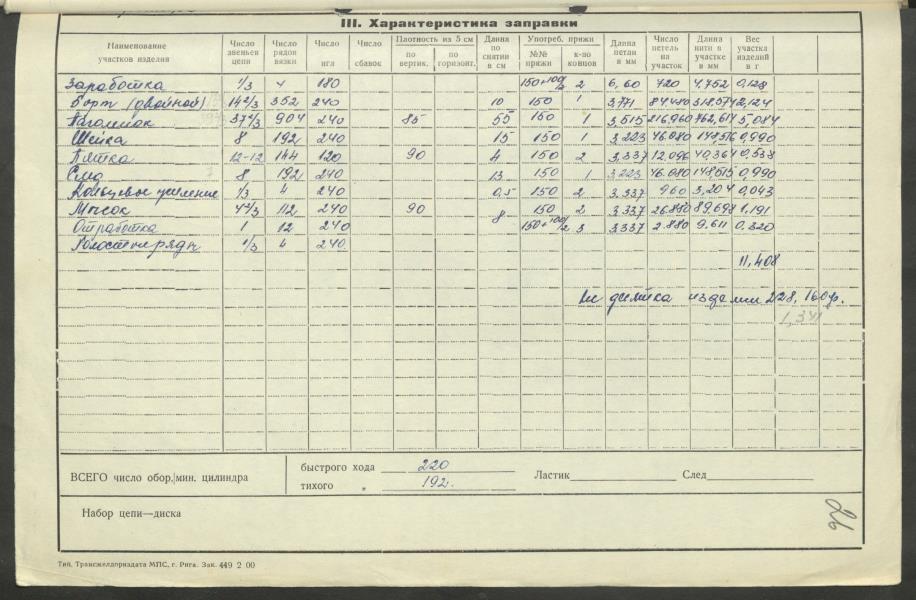 III. Характеристика заправки
Наименование участков изделия | Число звеньев цепи | Число рядов вязки | Число игл | Число сбавок | Плотность из 5 см по вертик. | по горизонт. | Длина по снятии в см | Употреб. пряжи №№ пряжи | к-во концов | Длина петли в мм | Число петель на участок | Длина нити в участке в мм | Вес участка изделий в г
Заработка 1/3 4 180 150+100/2 2 6,60 720 4.752 0,128
Борт (двойной) 14 2/3 352 240 10 150 1 3,771 84.480 318.574 2,124
Паголенок 37 2/3 904 240 85 55 150 1 3,515 216,960 762,614 5.084
Шейка 8 192 240 15 150 1 3.223 46.080 148,516 0,990
Пятка 12-12 144 120 90 4 150 2 3.337 12.096 40,364 0,538
След 8 192 240 13 150 1 3.223 46.080 148,515 0,990
Кольцевое усиление 1/3 4 240 0,5 150 2 3.337 960 3,204 0,043
Мысок 4 2/3 112 240 90 8 150 2 3.337 26.880 89.698 1,191
Отработка 1 12 240 150+100/2 3 3.337 2.880 9.611 0.320
Холостые ряды 1/3 4 240
11,408
десятка изделий 228,160 гр.
ВСЕГО число обор./мин. цилиндра
быстрого хода 220
тихого „ 192.
Ластик
След
Набор цепи—диска
26
Тип. Трансжелдориздата МПС, г. Рига. Зак. 449 2 00